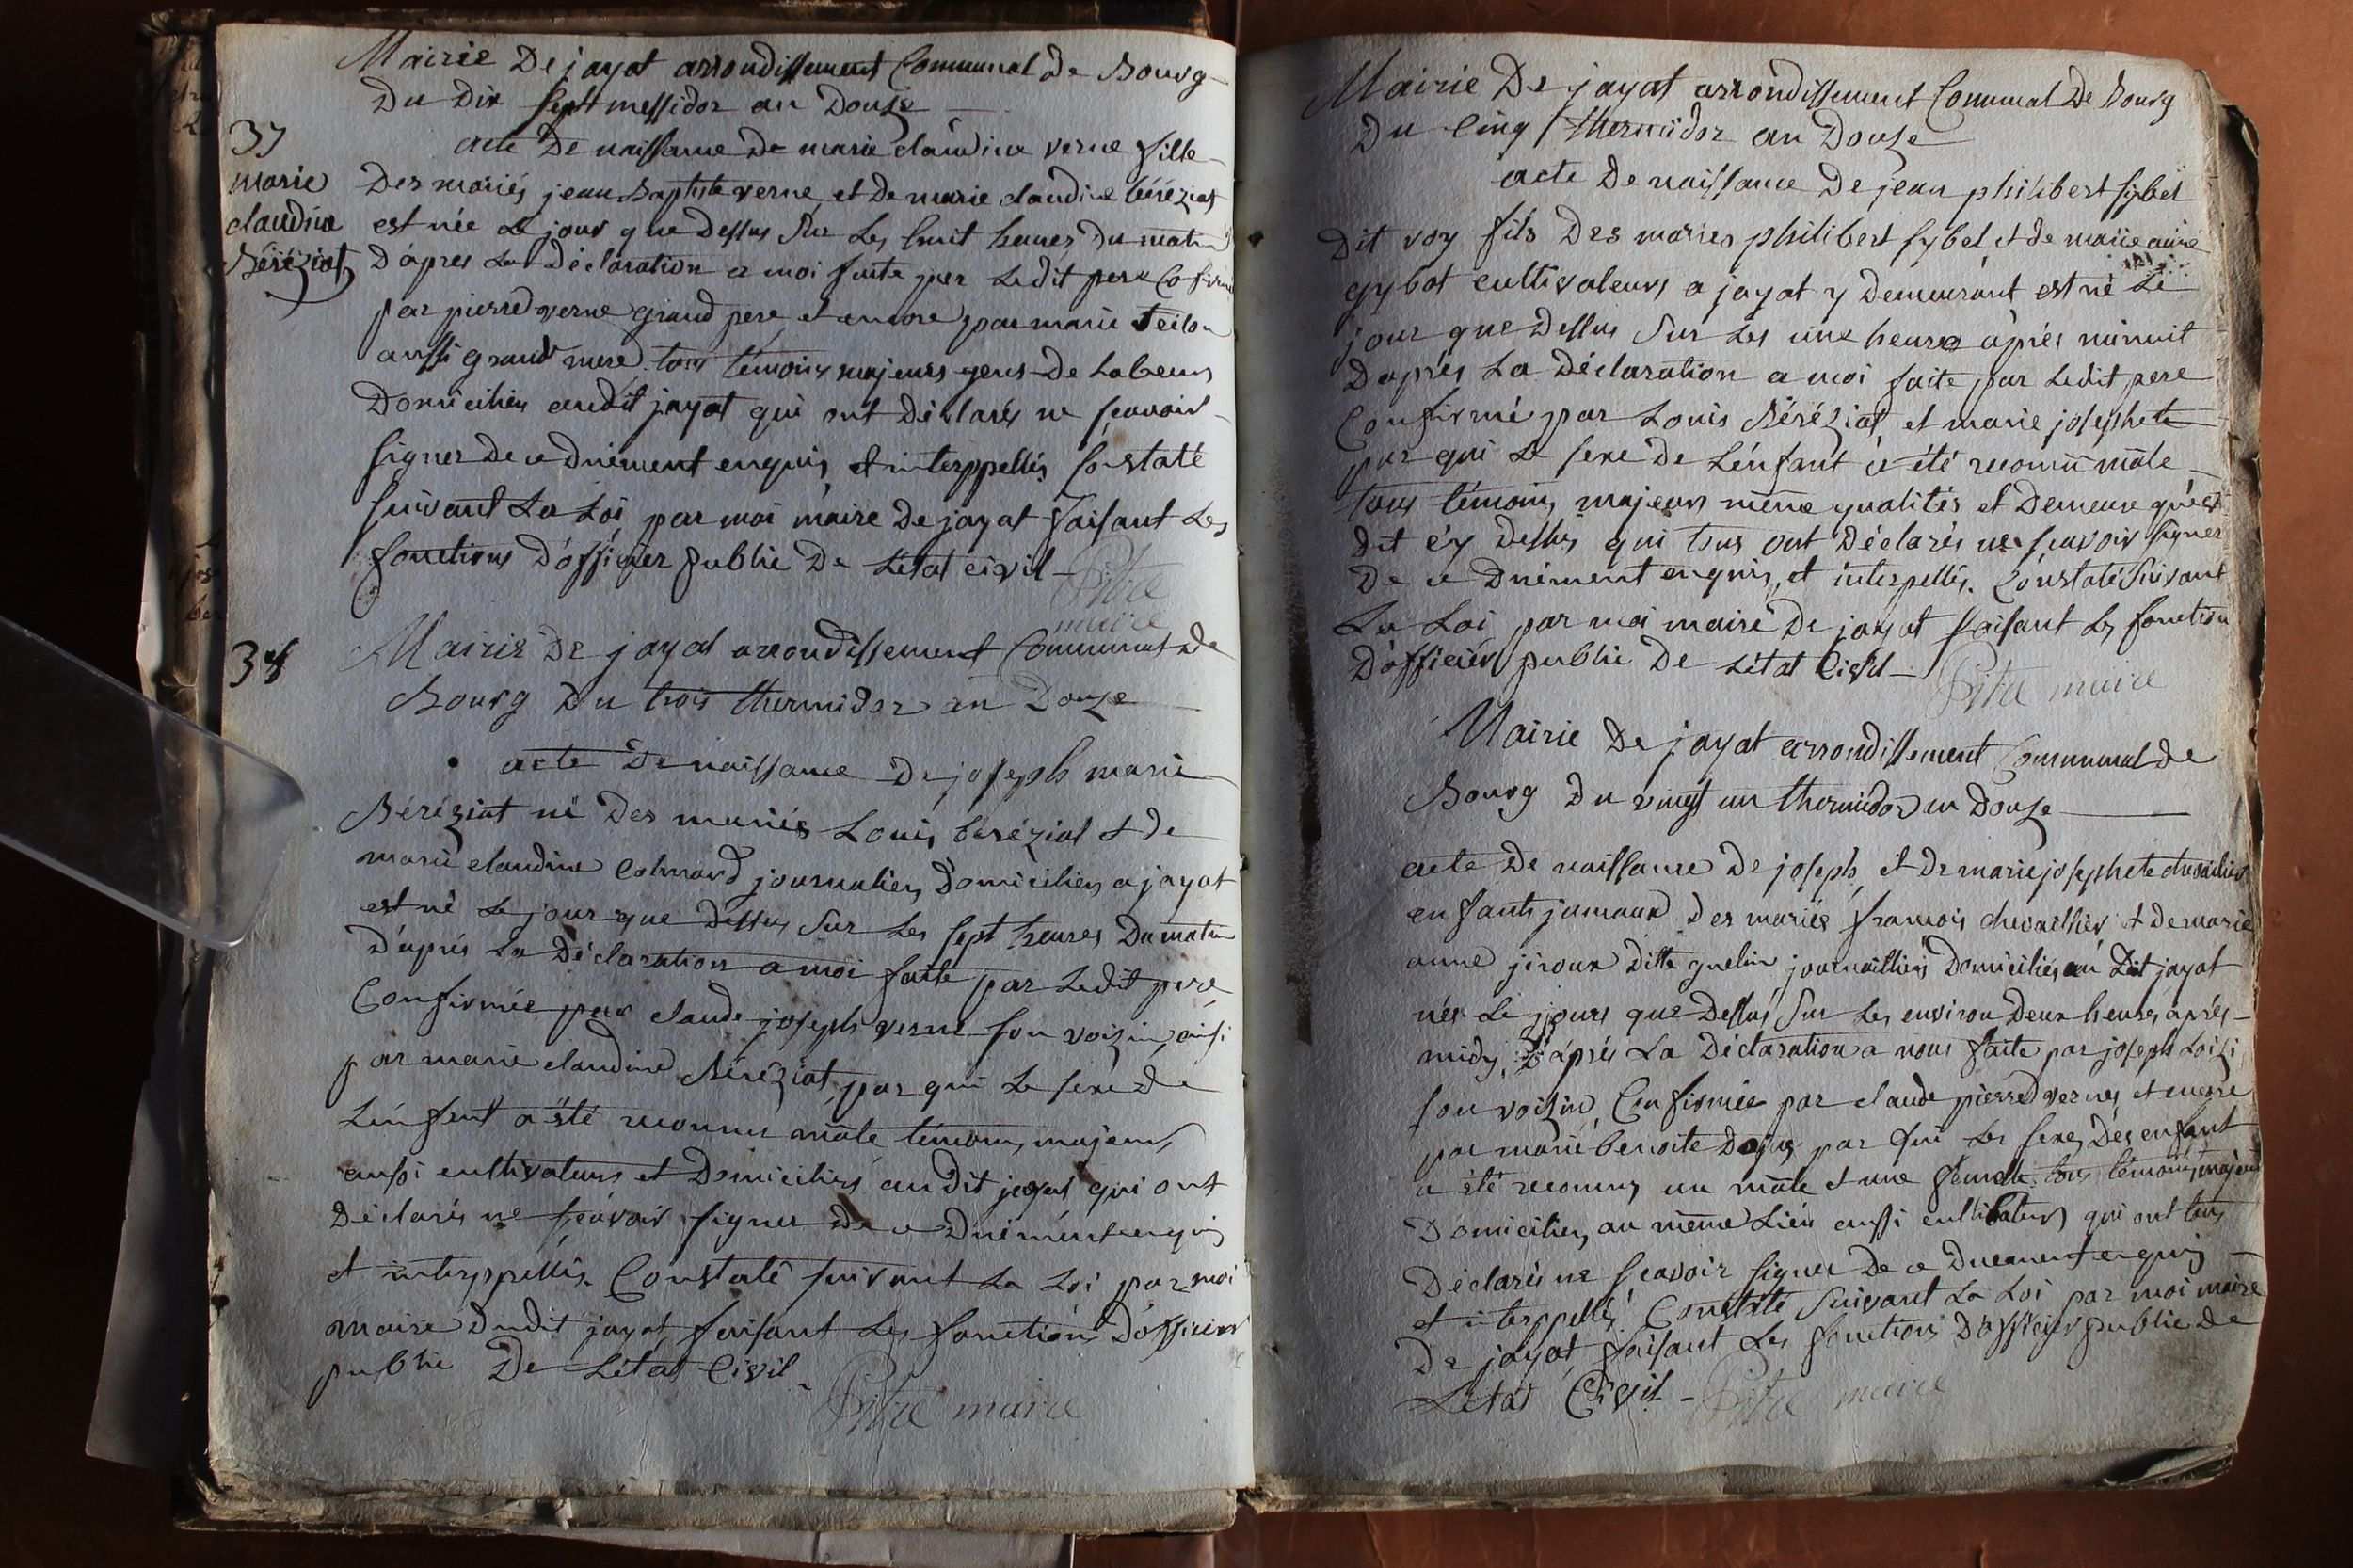 Mairie De jayat arrondissement Communal de Bourg
Du Dix sept messidor an Douze
37
acte De naissance De marie claudine verne fille
marie
Des mariés jean Baptiste verne et De marie claudine béréziat
claudine
est née Le jour que Dessus Sur Les huit heures Du matin
Béréziat
D'apres La Déclaration a moi faite par Ledit pere
par pierre verne grand pere et encore par marie
aussi grand mere tous témoins majeurs gens De Labeur
Domiciliés audit jayat qui ont Déclarés ne sçavoir
signer De ce Duement enquis et interppellés Constaté
suivant La Loi par moi maire De jayat faisant Les
fonctions D'officier public De Létat civil
Pitre
maire
38
Mairie De jayat arrondissement Communal De
Bourg Du trois thermidor an Douze
acte De naissance De joseph marie
Béréziat né Des mariés Louis béréziat et de
marie claudine Colmard journaliers Domiciliés a jayat
est né Le jour que Dessus Sur Les sept heures Du matin
D'aprés La Déclaration a moi faite par Ledit pere
Confirmée par claude joseph verne son voizin, ainsi
par marie claudine Béréziat par qui Le sexe De
L'énfant a été reconnu mâle témoins majeurs
aussi cultivateurs et Domiciliés audit jayat qui ont
Déclarés ne sçavoir signer De ce Duément enquis
et interppellés. Constaté suivant La Loi par moi
maire Dudit jayat faisant Les fonctions D'officier
public De Létat Civil
Pitre maire
Mairie De jayat arrondissement Communal De Bourg
Du cinq thermidor an Douze
acte De naissance De jean philibert sybel
Dit roy fils Des mariés philibert sybel et de marie
gybot cultivateurs a jayat y Demeurant est né Le
jour que Dessus Sur Les une heures aprés minuit
D'aprés La Déclaration a moi faite par Ledit pere
Confirmé par Louis Béréziat et marie josephete
par qui Le sexe De L'énfant a été reconnu mâle
tous témoins majeurs même qualités et Demeure qu'est
Dit cy Dessus qui tous ont Déclarés ne sçavoir signer
De ce Duément enquis, et interpellés. Constaté suivant
La Loi par moi maire De jayat faisant Les fonction
D'officier public De Létat Civil
Pitre maire
Mairie De jayat arrondissement Communal de
Bourg Du vingt un thermidor an Douze
acte De naissance De joseph, et De marie josephete chevaillier
enfants jumaux Des mariés francois chevaillier et De marie
anne jiroux Ditte guelin journailliers Domiciliés au Dit jayat
nés Le jours que Dessus Sur Les environ Deux heures aprés
midy, D'aprés La Déclaration a nous faite par joseph
son voizin Confirmée par claude pierre vernes et encore
par marie benoite par qui Les sexes Des enfant
a été reconnus un mâle et une femelle tous témoins majeurs
Domiciliés au même Lieu aussi cultivateurs qui ont tous
Déclarés ne sçavoir signer De ce Duement enquis
et interppellés. Constaté suivant La Loi par moi maire
De jayat faisant Les fonctions D'officier public De
Létat Civil
Pitre maire